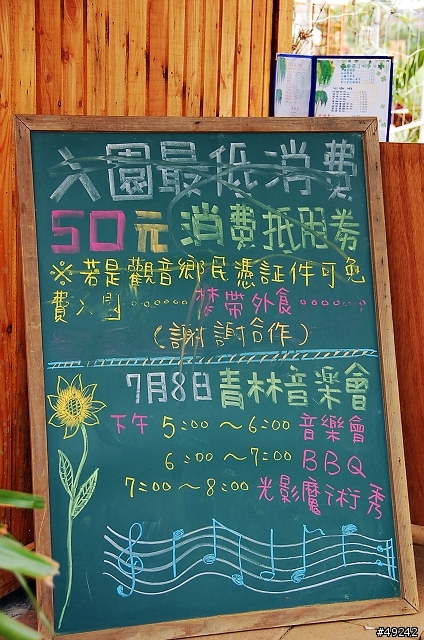 入園最低消費
50元 消費抵用券
※若是觀音鄉民憑証件可免
費入園......禁帶外食......
(謝謝合作)
7月8日青林音樂會
下午 5:00～6:00 音樂會
6:00～7:00 BBQ
7:00～8:00 光影魔術秀
#49242